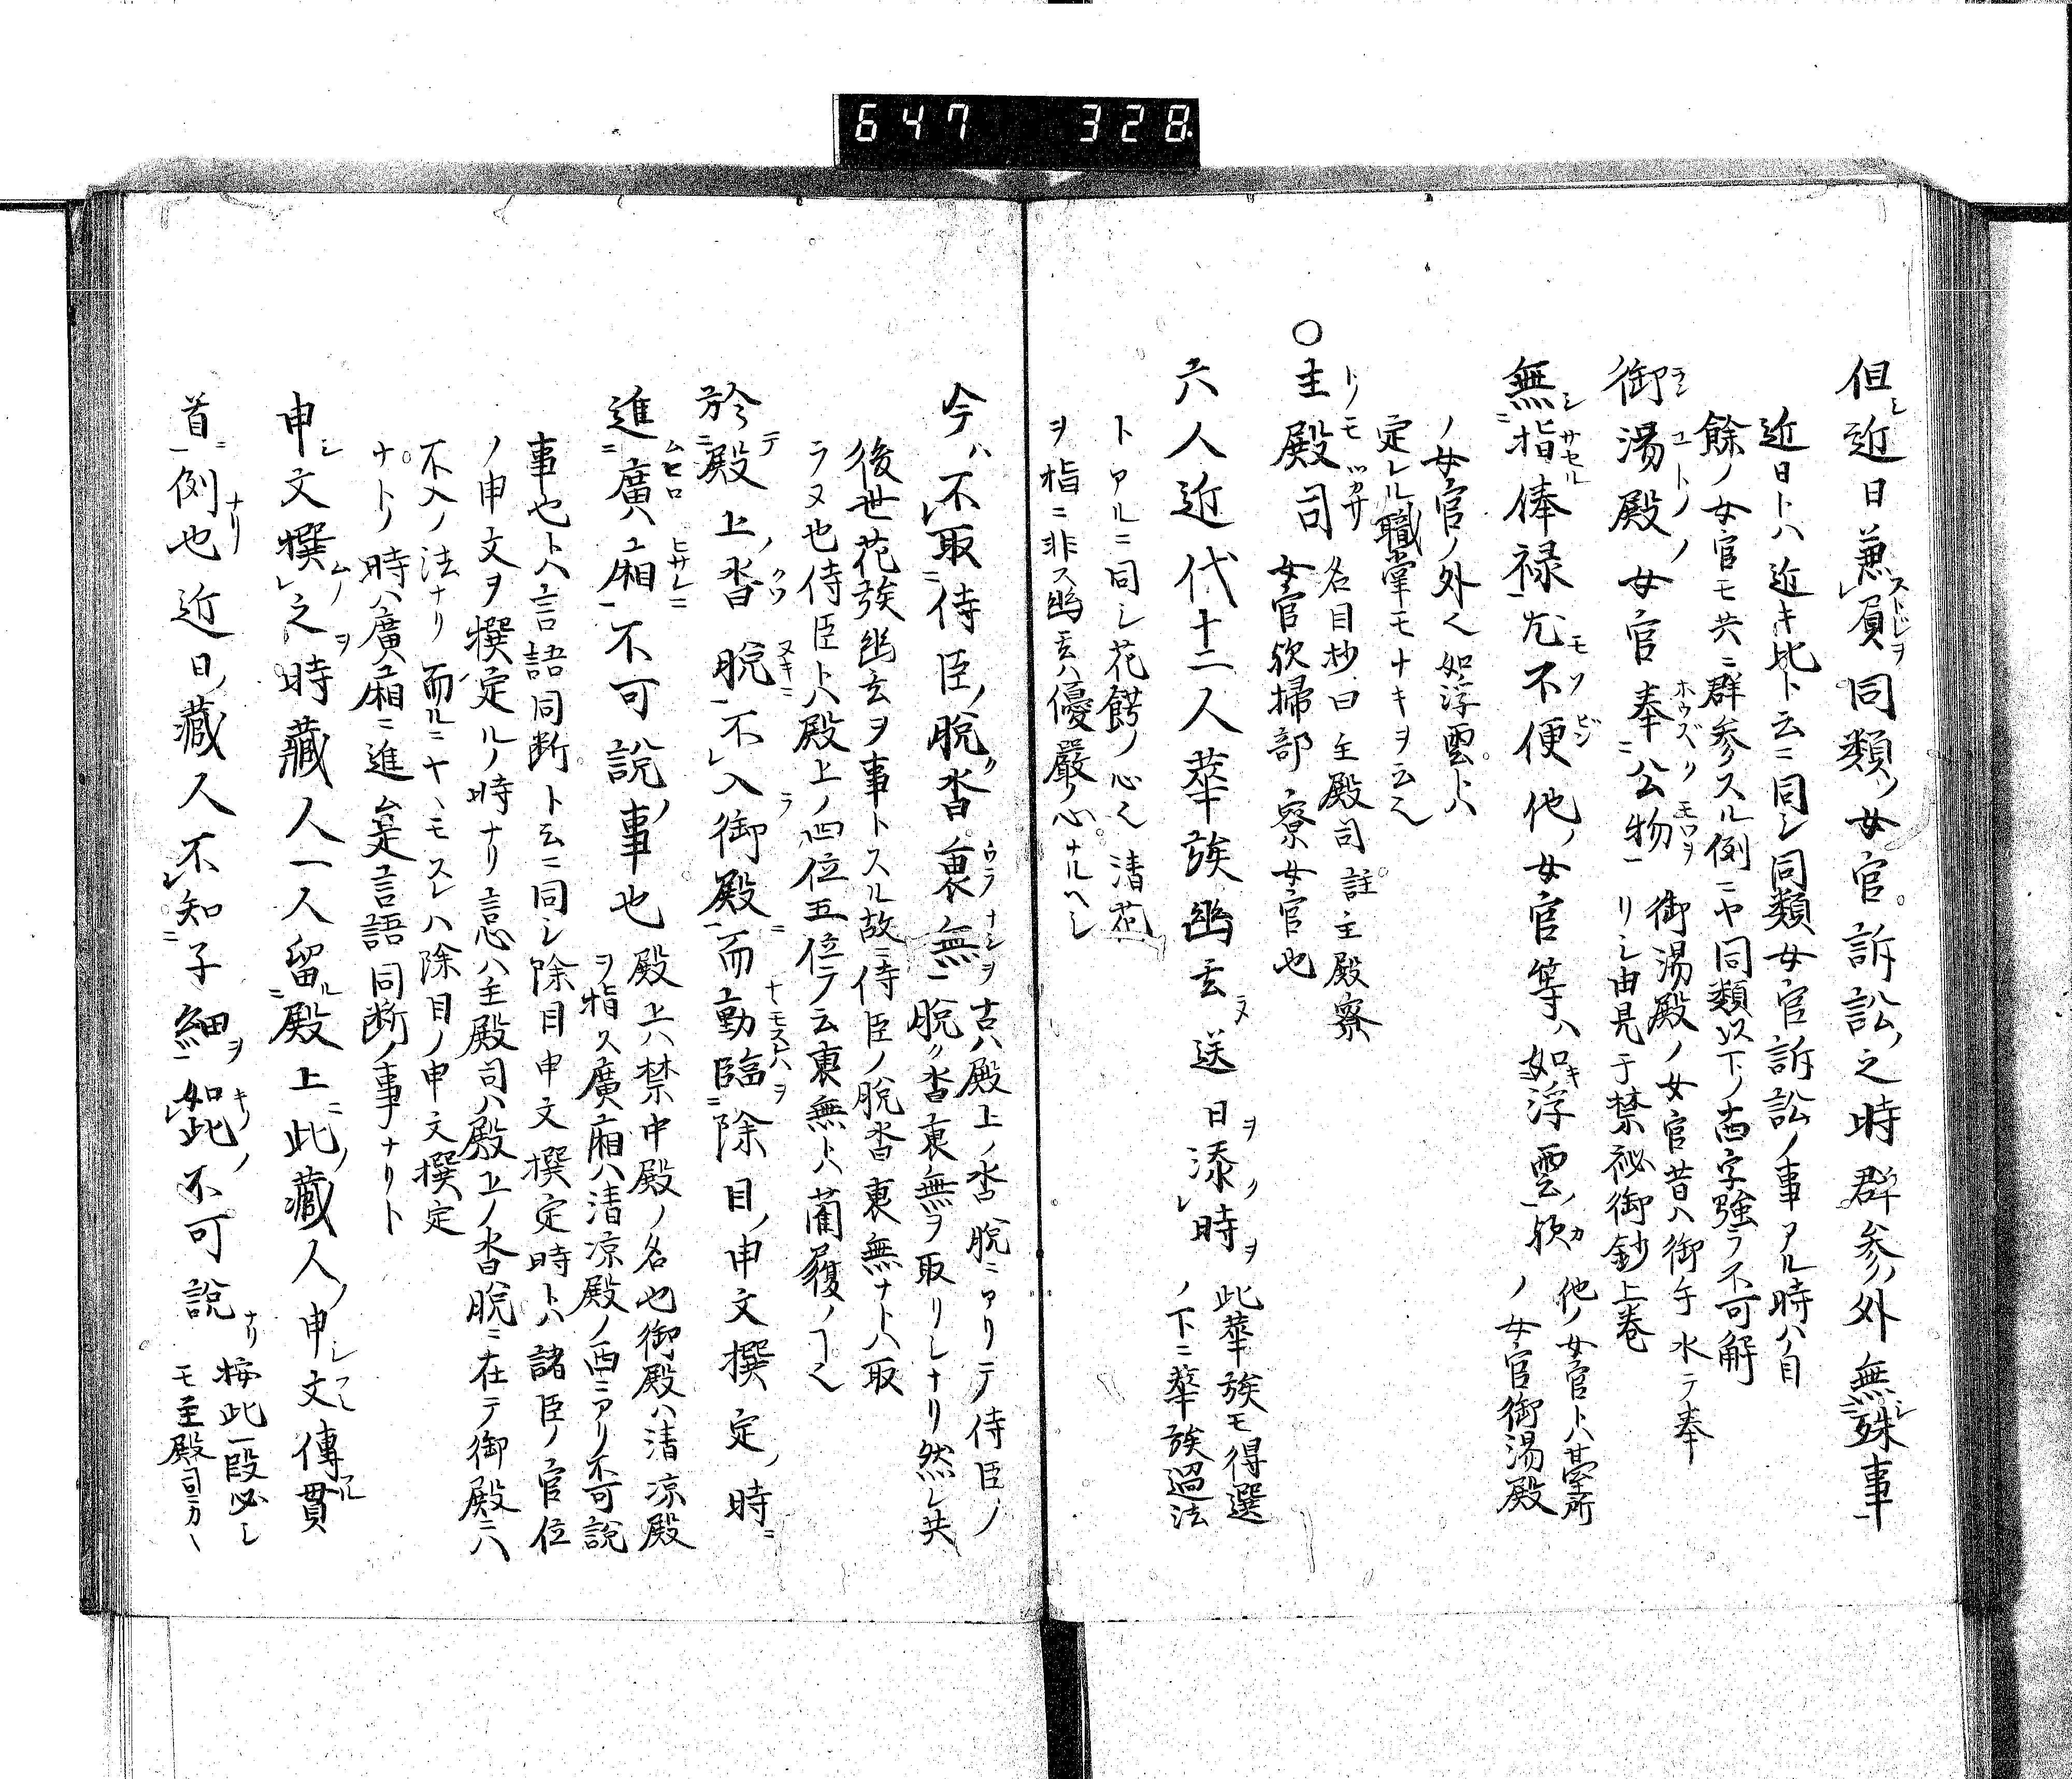 647 328
但近日兼員同類女官訴訟之時群参外無殊事
近日トハ近キ比ト云ニ同シ同類女官訴訟ノ事アル時ハ自
餘ノ女官モ共ニ群参スル例ニヤ同類以下ノ十四字強テ不可解
御湯殿女官奉公物 御湯殿ノ女官昔ハ御手水テ奉
リシ由見于禁秘御鈔上巻
無指俸禄尤不便他ノ女官等ハ如浮雲歟 他ノ女官トハ台所
ノ女官御湯殿
ノ女官ノ外也如浮雲トハ
定レル職掌モナキヲ云也
○主殿司 名目抄曰主殿司註主殿寮
女官欤掃部寮女官也
六人近代十二人華族幽玄送日添時 此華族モ得選
ノ下ニ華族過法
トアルニ同シ花餝ノ心也清花
ヲ指ニ非ス幽玄ハ優嚴ノ心ナルヘシ
今ハ不取侍臣ノ脱沓裏無 古ハ殿上ノ沓脱ニアリテ侍臣ノ
脱ク沓裏無ヲ取リシナリ然レ共
後世花族幽玄ヲ事トスル故ニ侍臣ノ脱沓裏無ナトハ取
ラヌ也侍臣トハ殿上ノ四位五位テ云裏無トハ藺履ノヿ也
於殿上ノ沓脱不入御殿而動臨除目ノ申文撰定ノ時
進廣廂不可説ノ事也 殿上ハ禁中殿ノ名也御殿ハ清凉殿
ヲ指ス廣廂ハ清凉殿ノ西ニアリ不可説
事也トハ言語同断ト云ニ同シ除目申文撰定時トハ諸臣ノ官位
ノ申文ヲ撰定ルノ時ナリ言心ハ主殿司ハ殿上ノ沓脱ニ在テ御殿ニハ
不入ノ法ナリ而ルニヤヽモスレハ除目ノ申文撰定
ナトノ時ハ廣廂ニ進ム是言語同断ノ事ナリト
申文撰之時藏人一人留殿上此ノ藏人ノ申文傳貫
首例也近日藏人不知子細如此ノ不可説 按此一段必シ
モ主殿司ニカヽ